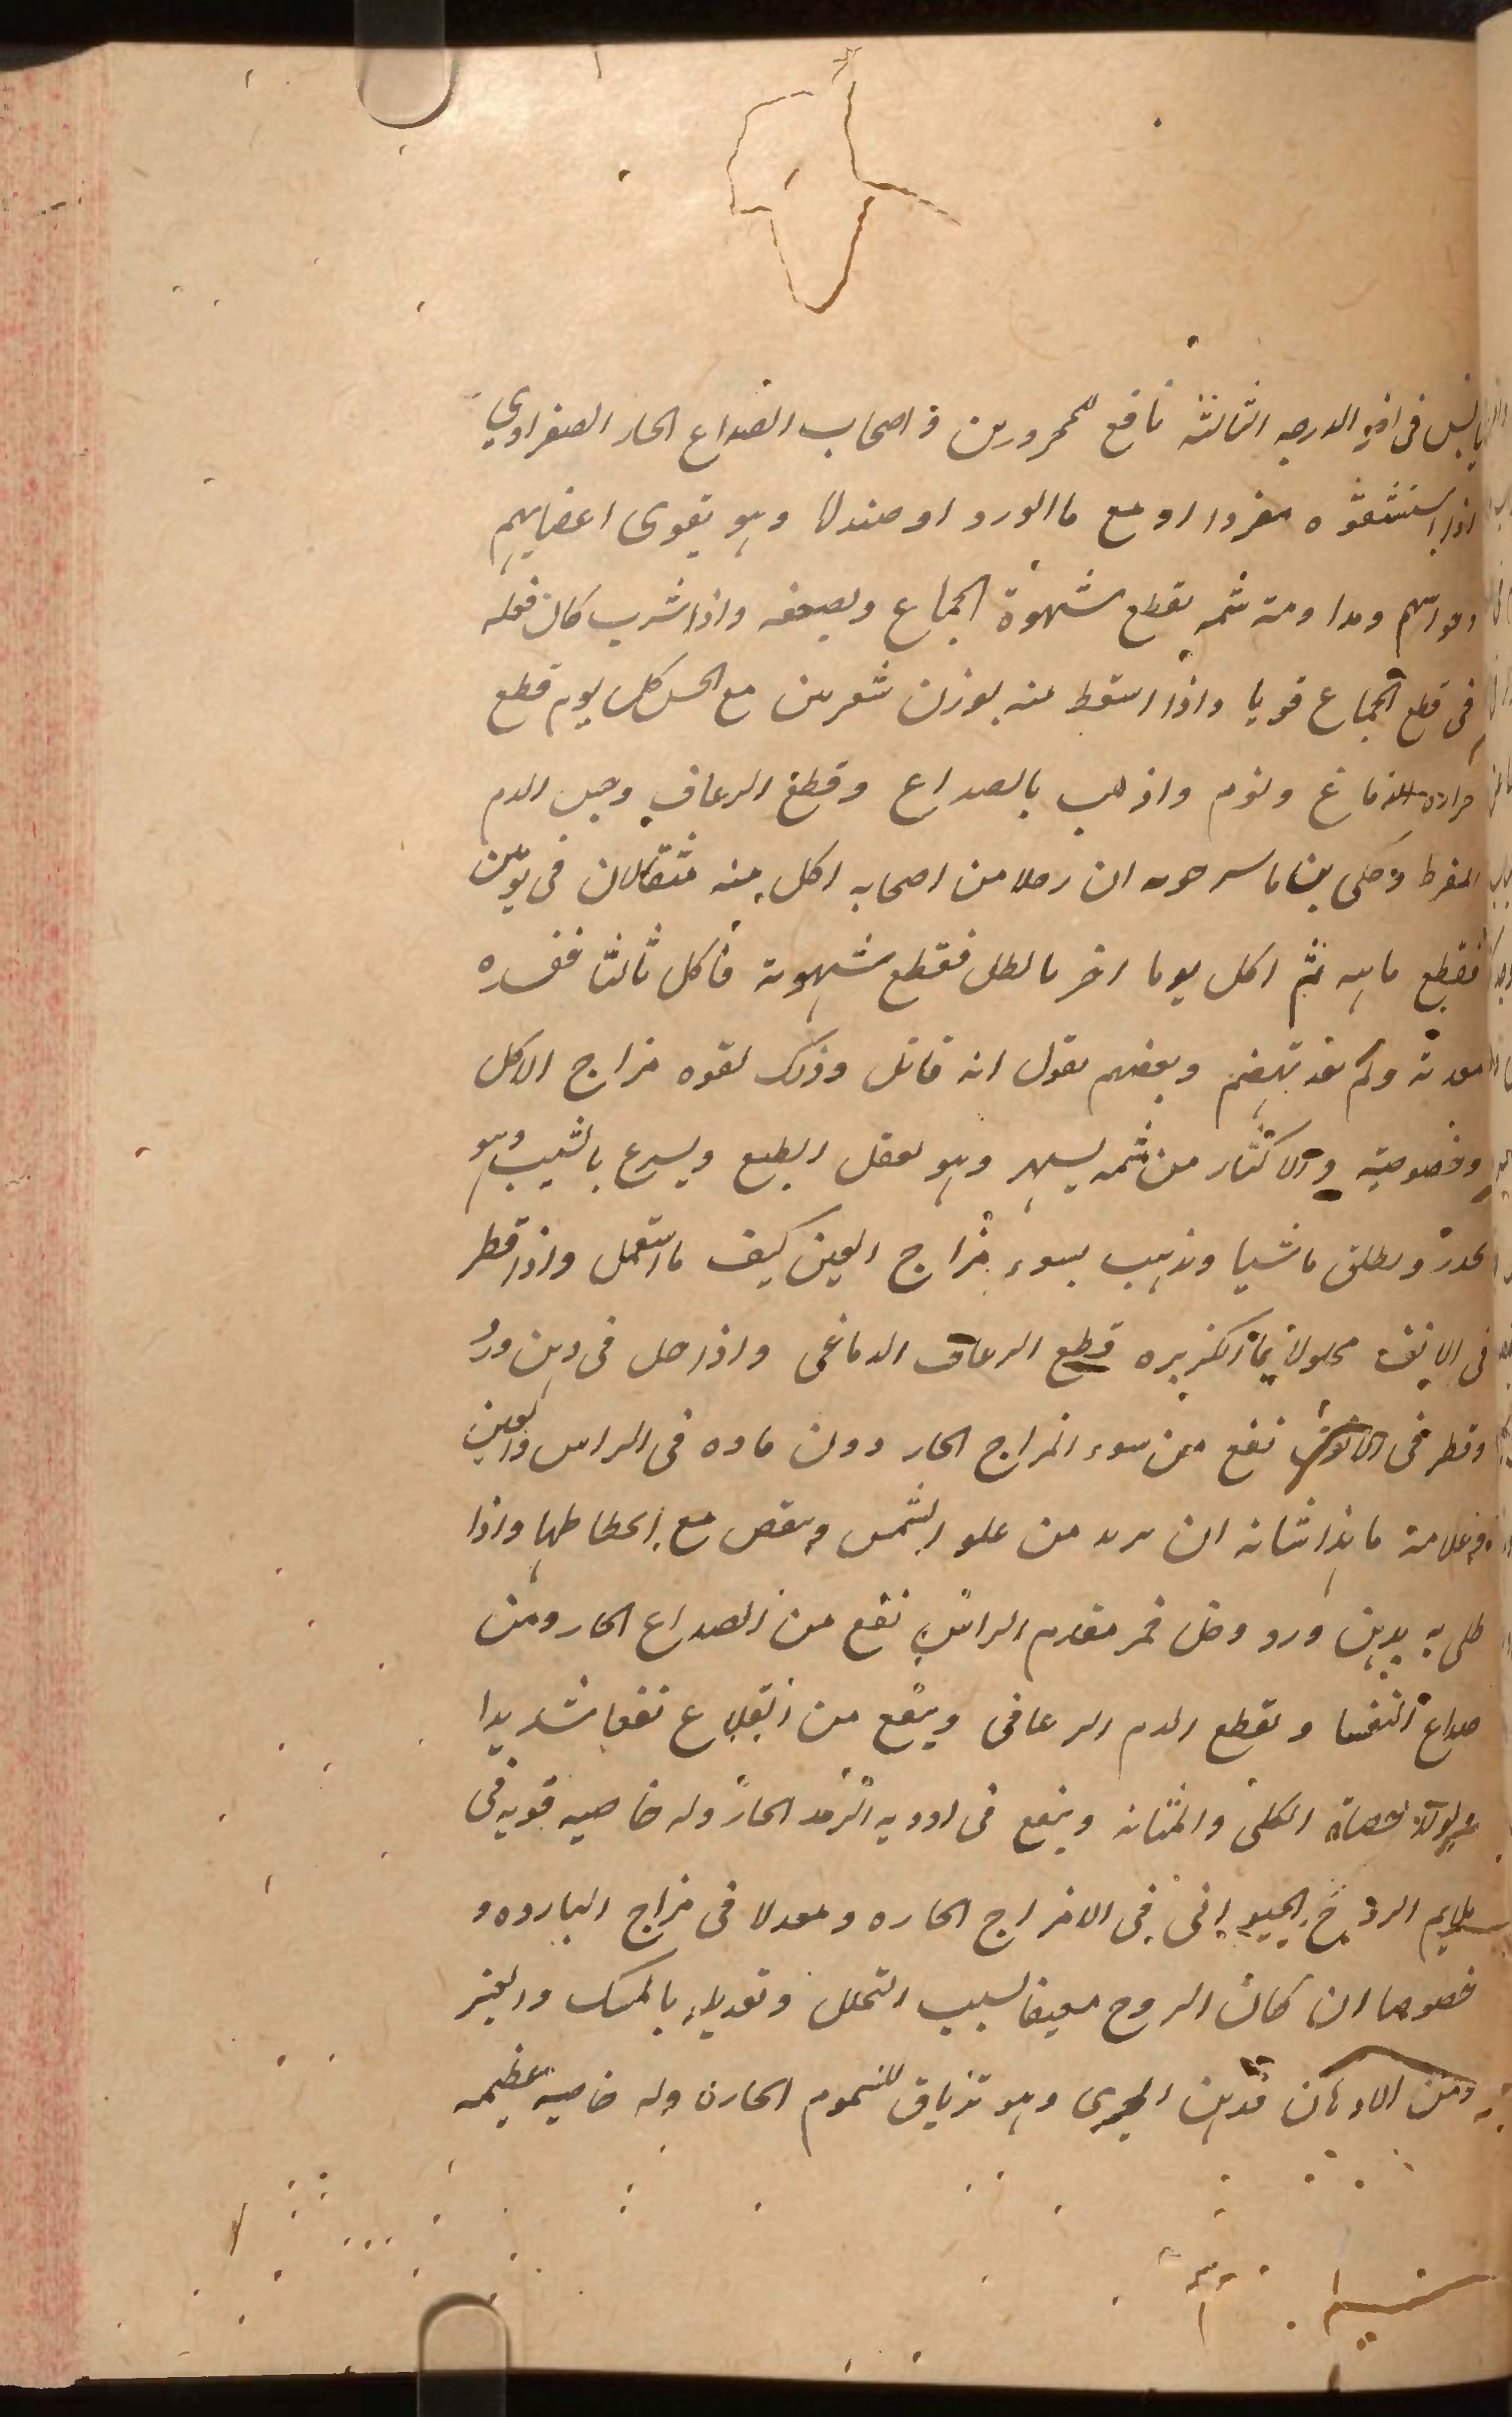 يابس فى اخر الدرجه الثالثة نافع للمحرورين و اصحاب الصداع الحار الصفراوي
اذا استنشقوه مفردا او مع ما الورد او صندل وهو يقوى اعضايهم
وحواسهم ومداومة شمه يقطع شهوة الجماع ويضعفه واذا شرب كان فعله
فى قطع الجماع قويا واذا استعط منه بوزن شعرين مع الخس كل يوم قطع
حرارة الدماغ ونوم واذهب بالصداع وقطع الرعاف وحبس الدم
المفرط وحكى بن ماسرحويه ان رجلا من اصحابه اكل منه مثقالان فى يومين
فقطع مابه ثم اكل يوما اخر مثالطل فقطع شهوته فاكل ثالثا ففسده
معدته ولم تعد تهضم وبعضهم يقول انه قاتل وذلك لقوه مزاج الاكل
وخصوصيته والاكثار من شمه يسهر وهو يعقل الطبع ويسرع بالشيب وهو
يخدر ويطلق ماشيا ويذهب بسوء مزاج العين كيف ما استعمل واذا قطر
فى الانف محلولا بماء الكزبره قطع الرعاف الدماغى واذا حل فى دهن ورد
وقطر فى الانف نفع من سوء المزاج الحار دون ماده فى الراس والعين
وعلامة ماهذا شانه ان يزيد من علو الشمس وينقص مع انحطاطها واذا
طلى به بدهن ورد وخل خمر مقدم الراس نفع من الصداع الحار ومن
صداع النفسا ويقطع الدم الرعافى وينفع من القلاع نفعا شديدا
ويولد حصاة الكلى والمثانه وينفع فى ادويه الرمد الحار وله خاصيه قويه فى
يلايم الروح الحيوانى فى الامزاج الحاره ومعدلا فى مزاج البارده و
خصوصا ان كان الروح ضعيفا لسبب التحلل وتعديله بالمسك والعنبر
ومن الادهان دهن الخيرى وهو ترياق للسموم الحاره وله خاصيه عظيمه